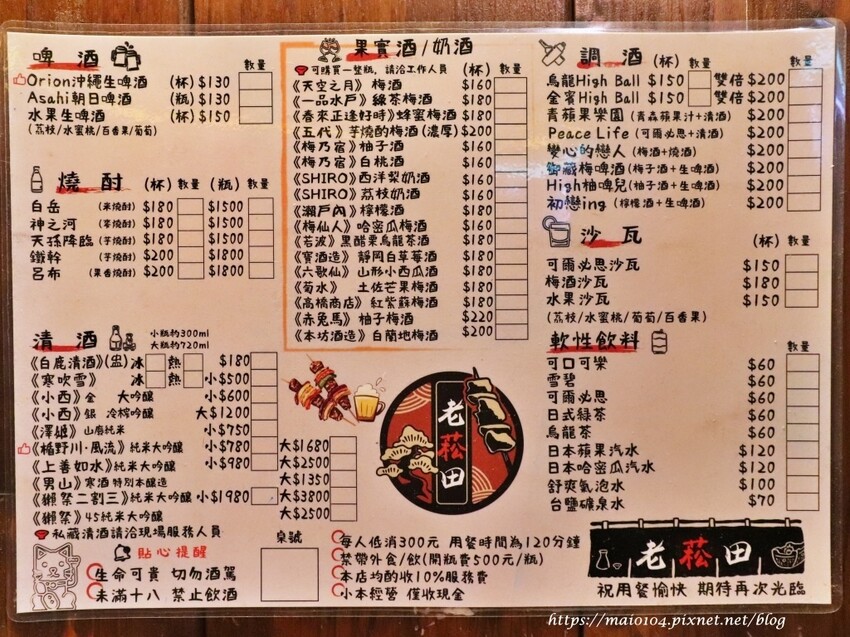 啤酒
數量
Orion沖繩生啤酒 (杯) $130
Asahi朝日啤酒 (瓶) $130
水果生啤酒 (杯) $150
(荔枝/水蜜桃/百香果/葡萄)
燒酎 (杯) 數量 (瓶) 數量
白岳 (米燒酎) $180 $1500
神之河 (麥燒酎) $180 $1500
天孫降臨 (芋燒酎) $180 $1500
鐵幹 (芋燒酎) $200 $1800
呂布 (果香燒酎) $200 $1800
清酒
小瓶約300ml
大瓶約720ml
數量
《白鹿清酒》(盅) 冰 熱 $180
《寒吹雪》 冰 熱 小$500
《小西》金 大吟釀 小$600
《小西》銀 冷榨吟釀 大$1200
《澤姬》山廢純米 小$750
《楯野川·風流》純米大吟釀 小$780 大$1680
《上善如水》純米大吟釀 小$980 大$2500
《男山》寒酒特別本釀造 大$1350
《獺祭二割三》純米大吟釀 小$1980 大$3800
《獺祭》45純米大吟釀 大$2500
私藏清酒請洽現場服務人員
貼心提醒
生命可貴 切勿酒駕
未滿十八 禁止飲酒
桌號
果實酒/奶酒
可購買一整瓶,請洽工作人員 (杯) 數量
《天空之月》梅酒 $160
《一品水戶》綠茶梅酒 $180
《春來正逢好時》蜂蜜梅酒 $180
《五代》芋燒酌梅酒(濃厚) $200
《梅乃宿》柚子酒 $160
《梅乃宿》白桃酒 $160
《SHIRO》西洋梨奶酒 $160
《SHIRO》荔枝奶酒 $160
《瀨戶內》檸檬酒 $180
《梅仙人》哈密瓜梅酒 $160
《若波》黑醋栗烏龍茶酒 $180
《寶酒造》靜岡白草莓酒 $180
《六歌仙》山形小西瓜酒 $180
《菊水》土佐芒果梅酒 $180
《高橋商店》紅紫蘇梅酒 $180
《赤兔馬》柚子梅酒 $220
《本坊酒造》白蘭地梅酒 $200
老菘田
每人低消300元 用餐時間為120分鐘
禁帶外食/飲(開瓶費500元/瓶)
本店均酌收10%服務費
小本經營 僅收現金
調酒 (杯) 數量 數量
烏龍High Ball $150 雙倍 $200
金賓High Ball $150 雙倍 $200
青蘋果樂園 (青森蘋果汁+清酒) $200
Peace Life (可爾必思+清酒) $200
變心的戀人 (梅酒+燒酒) $200
御藏梅啤酒 (梅子酒+生啤酒) $200
High柚啤兒 (柚子酒+生啤酒) $200
初戀ing (檸檬酒+生啤酒) $200
沙瓦 (杯) 數量
可爾必思沙瓦 $150
梅酒沙瓦 $180
水果沙瓦 $150
(荔枝/水蜜桃/葡萄/百香果)
軟性飲料
數量
可口可樂 $60
雪碧 $60
可爾必思 $60
日式綠茶 $60
烏龍茶 $60
日本蘋果汽水 $120
日本哈密瓜汽水 $120
舒爽氣泡水 $100
台鹽礦泉水 $70
老菘田
祝用餐愉快 期待再次光臨
https://maio104.pixnet.net/blog